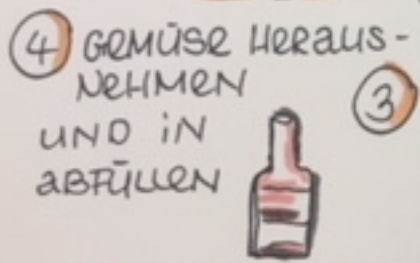 4 GEMÜSE HERAUS-
NEHMEN
3
UND IN
ABFÜLLEN